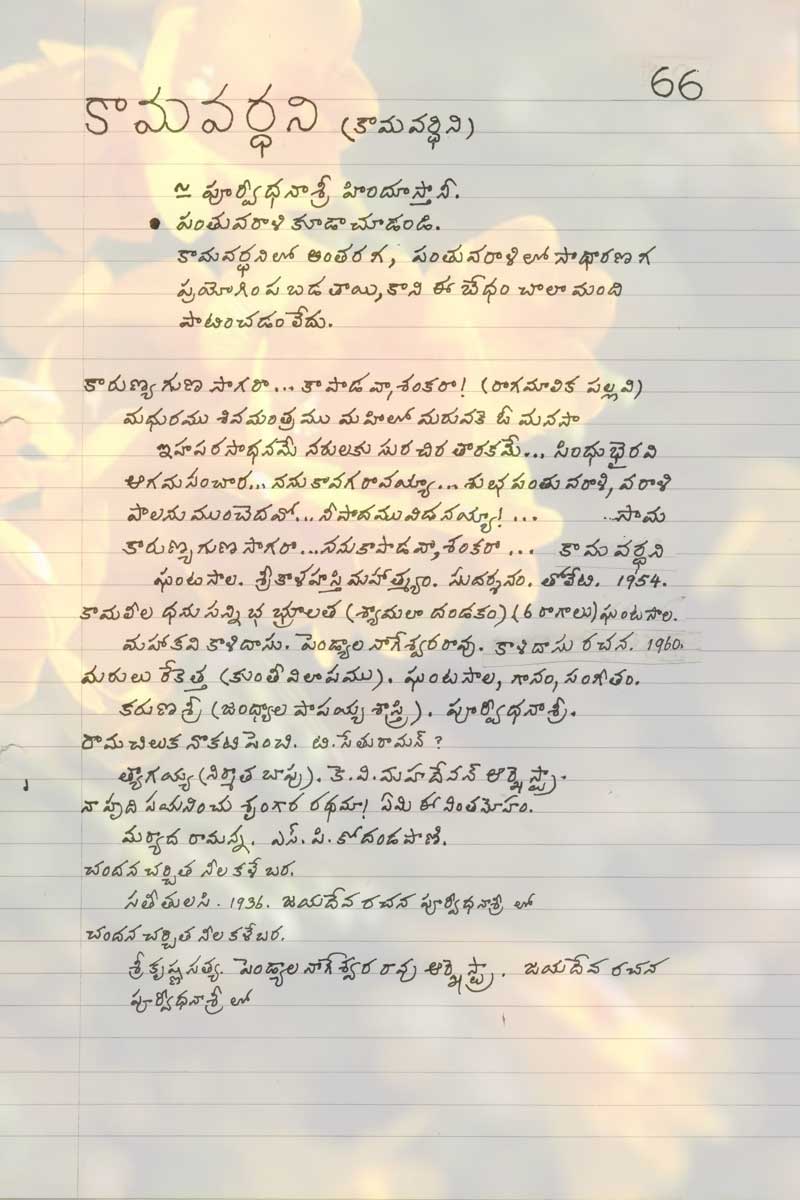 66
కామవర్ధని (కామవర్ధిని)
≃ పూర్వీధనాశ్రీ హిందూస్తానీ.
● పంతువరాళి కూడా చూడండి.
కామవర్ధనిలో అంతర గ, పంతువరాళిలో సాధారణ గ
ప్రయోగింపబడతాయి, కాని ఈ బేధం చాలా మంది
పాటించడంలేదు.
కారుణ్య గుణ సాగరా... కాపాడవా, శంకరా! (రాగమాలిక పల్లవి)
మధురము శివమంత్రము మహిలో మరువకె ఓ మనసా
ఇహపరసాధనమే నరులకు సురచిర తారకమే... సింధుభైరవి
ఆగమసంచార... నను కావగరావయ్యా... శుభపంతువరాళి, వరాళి
పాలను ముంచెదవో... నీపాదమువిడనయ్యా!... ...సామ
కారుణ్యగుణ సాగరా... ననుకాపాడవా, శంకరా... కామవర్ధని
ఘంటసాల. శ్రీకాళహస్తి మహాత్మ్యం. సుదర్శనం. తోలేటి. 1954.
కామలీల ధనుసన్నిభ భ్రూలత (శ్యామలా దండకం) (6 రాగాలు) ఘంటసాల.
మహాకవి కాళిదాసు. పెండ్యాల నాగేశ్వరరావు. కాళిదాసు రచన. 1960.
మరులు రేకెత్త (కుంతీవిలాపము). ఘంటసాల, గానం, సంగీతం.
కరుణశ్రీ (జంధ్యాల పాపయ్య శాస్త్రి). పూర్వీధనాశ్రీ.
రామచిలుక నొకటి పెంచి. టి. సేతురామన్ ?
త్యాగయ్య (నిర్మాత బాపు). కె. వి. మహదేవన్ ఆర్కెస్ట్రా.
నా హృది పయనించు శృంగార రథమా! ఏమి ఈ వింతమోహం.
మర్యాద రామన్న. ఎస్. పి. కోదండపాణి.
చందన చర్చిత నీల కళేబర.
సతీతులసి. 1936. జయదేవ రచన పూర్వీధనాశ్రీ లో
చందన చర్చిత నీల కళేబర.
శ్రీకృష్ణసత్య. పెండ్యాల నాగేశ్వర రావు ఆర్కెస్ట్రా. జయదేవ రచన
పూర్వీధనాశ్రీ లో